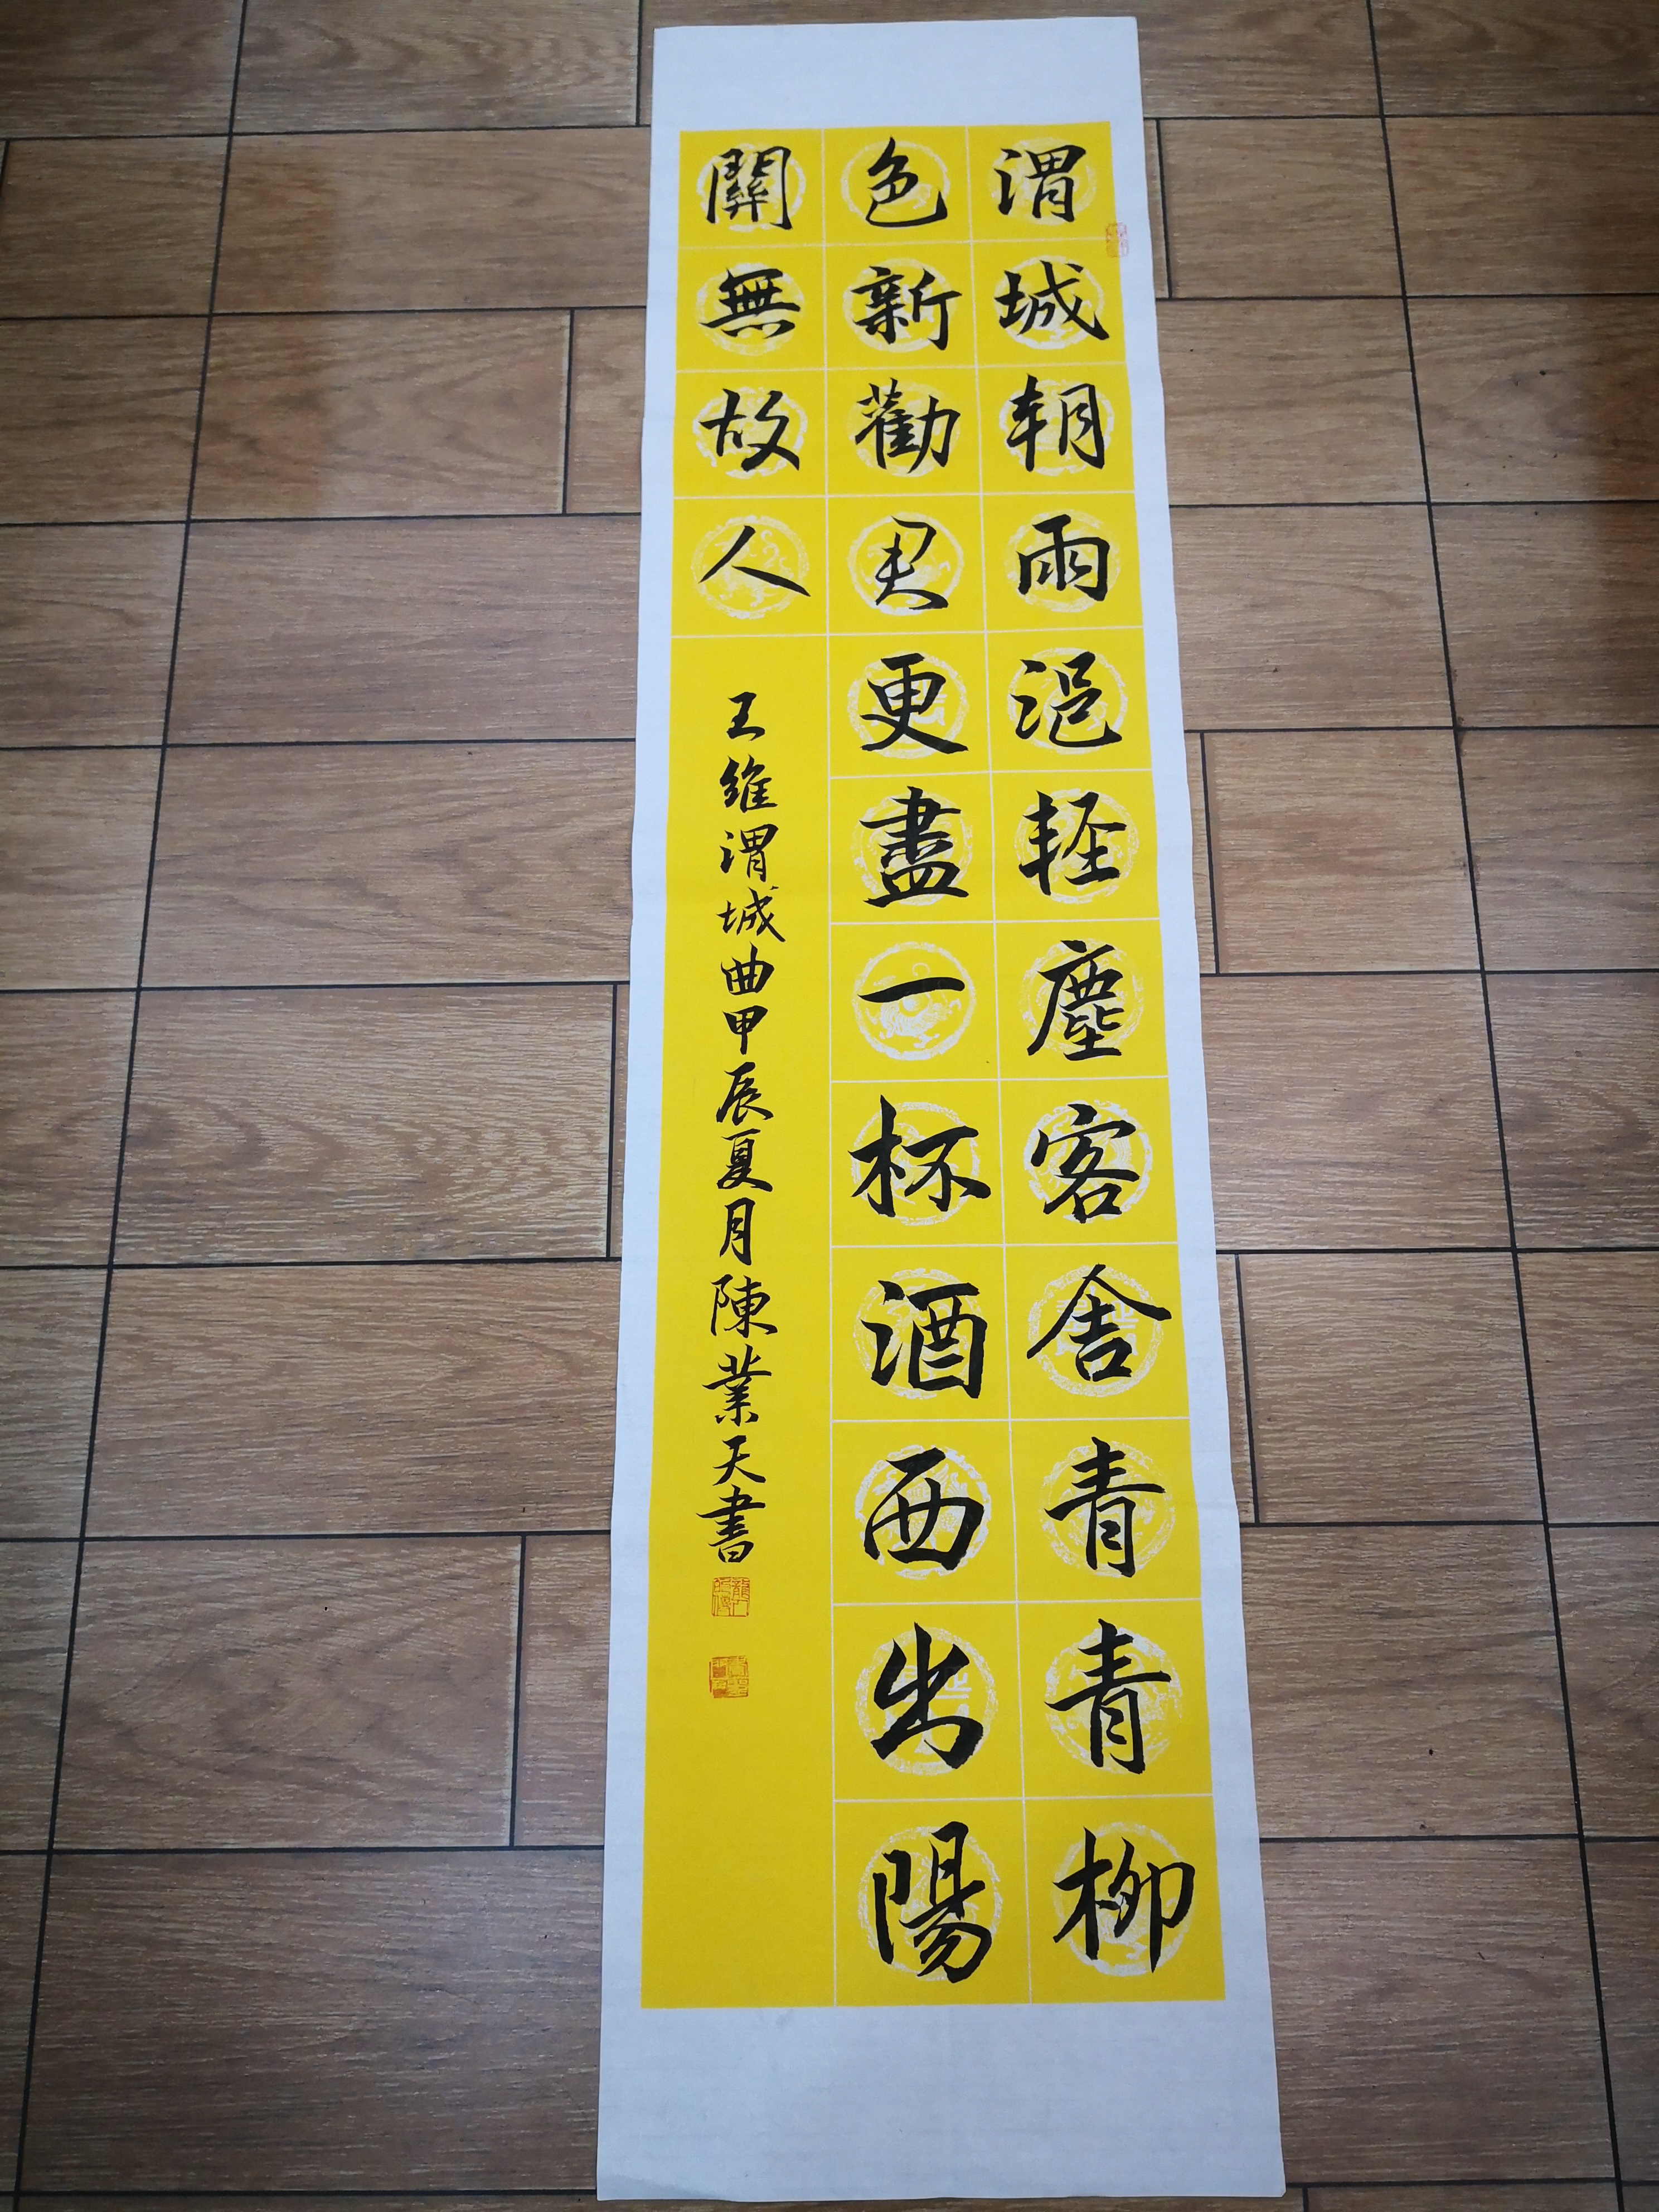 渭城朝雨浥輕塵客舍青青柳
色新勸君更盡一杯酒西出陽
關無故人
王維渭城曲甲辰夏月陳業天書